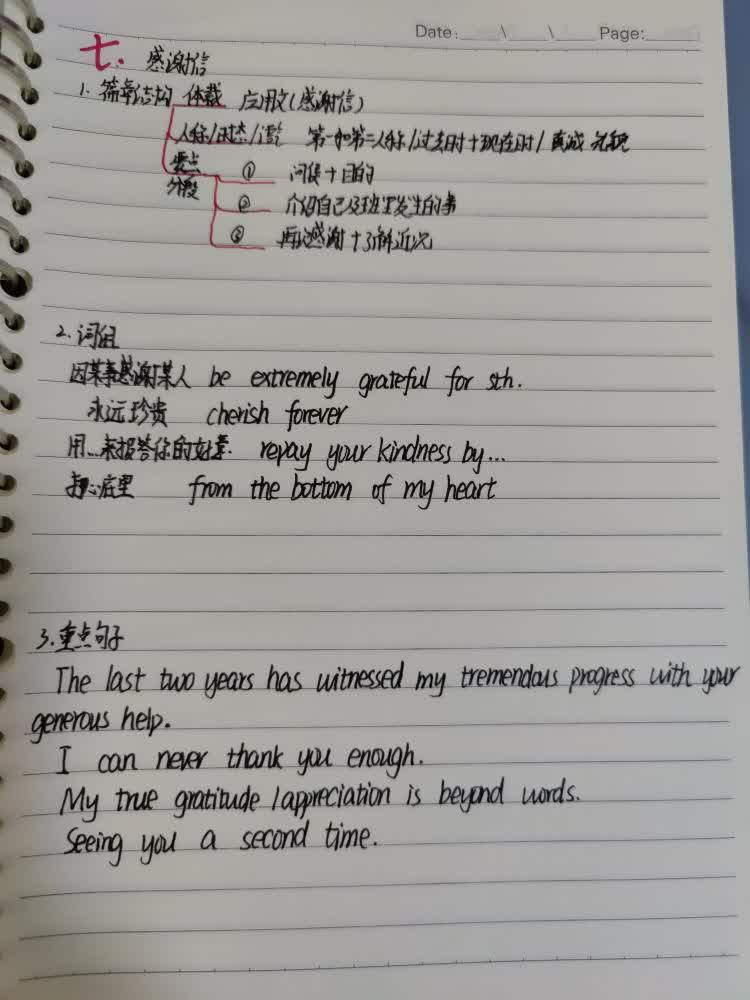 Date: \ \ Page:
七. 感谢信
1. 篇章结构 体裁 应用文(感谢信)
人称/时态/语气 第一和第二人称/过去时+现在时/真诚 礼貌
要点 ① 问候+目的
分段
② 介绍自己及班里发生的事
③ 再次感谢+了解近况
2. 词组
因某事感谢某人 be extremely grateful for sth.
永远珍贵 cherish forever
用...来报答你的好意. repay your kindness by...
心底里 from the bottom of my heart
3. 重点句子
The last two years has witnessed my tremendous progress with your
generous help.
I can never thank you enough.
My true gratitude /appreciation is beyond words.
Seeing you a second time.